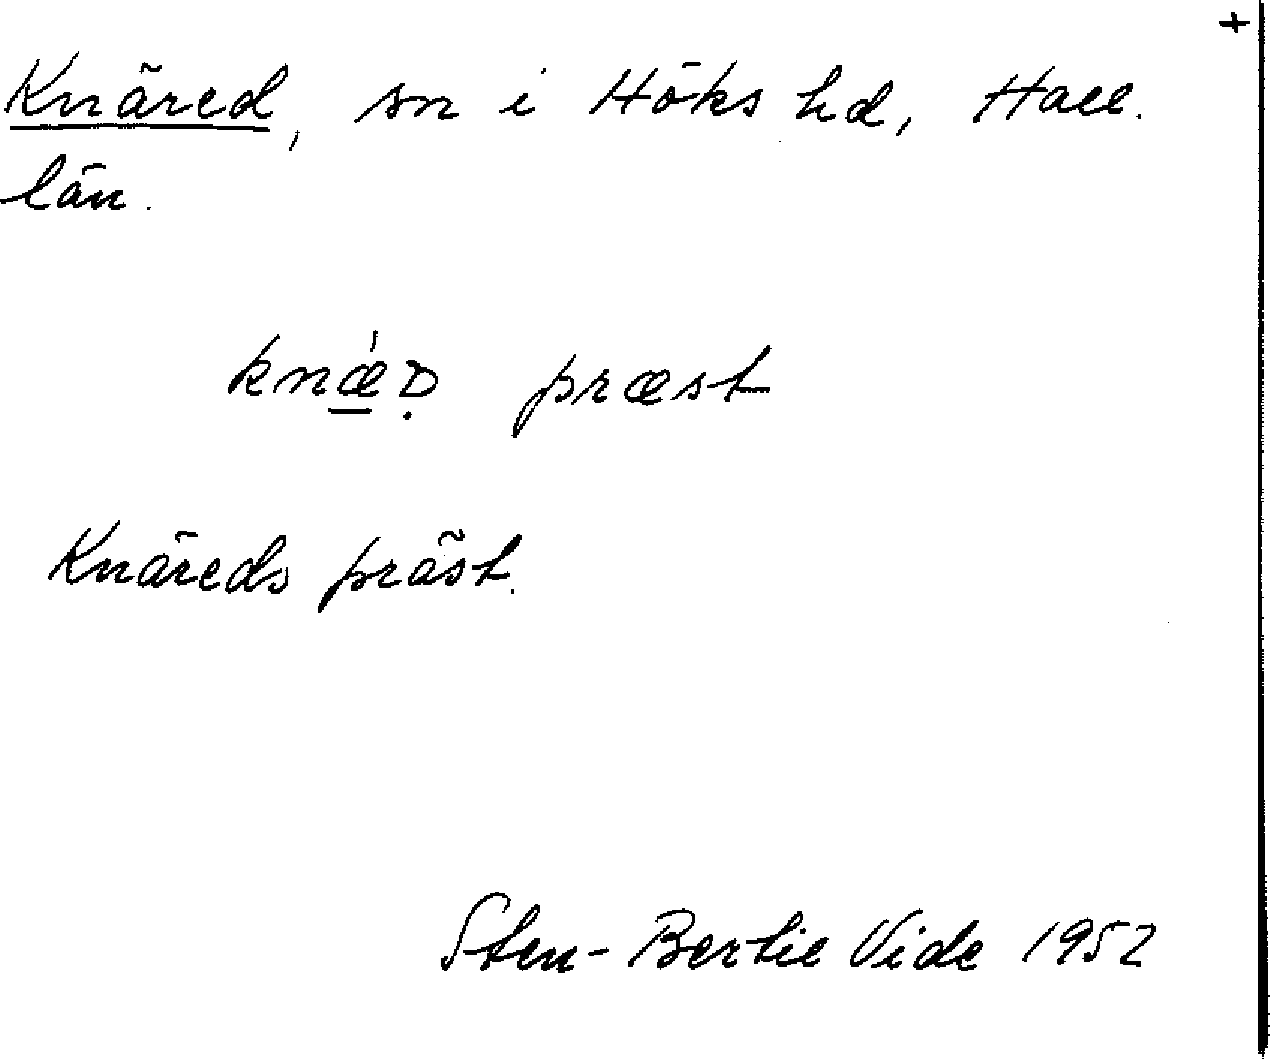 +
Knäred, sn i Höks hd, Hall.
län.
knǽḌ præst
Knäreds präst.
Sten-Bertil Vide 1952